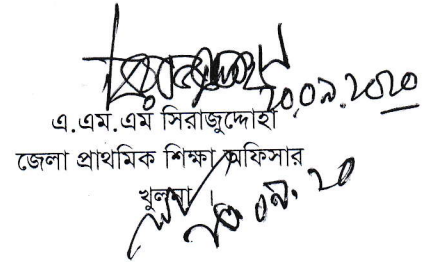 ২০.০৯.২০২০
এ.এম.এম সিরাজুদ্দোহা
জেলা প্রাথমিক শিক্ষা অফিসার
খুলনা।
২০.০৯.২০